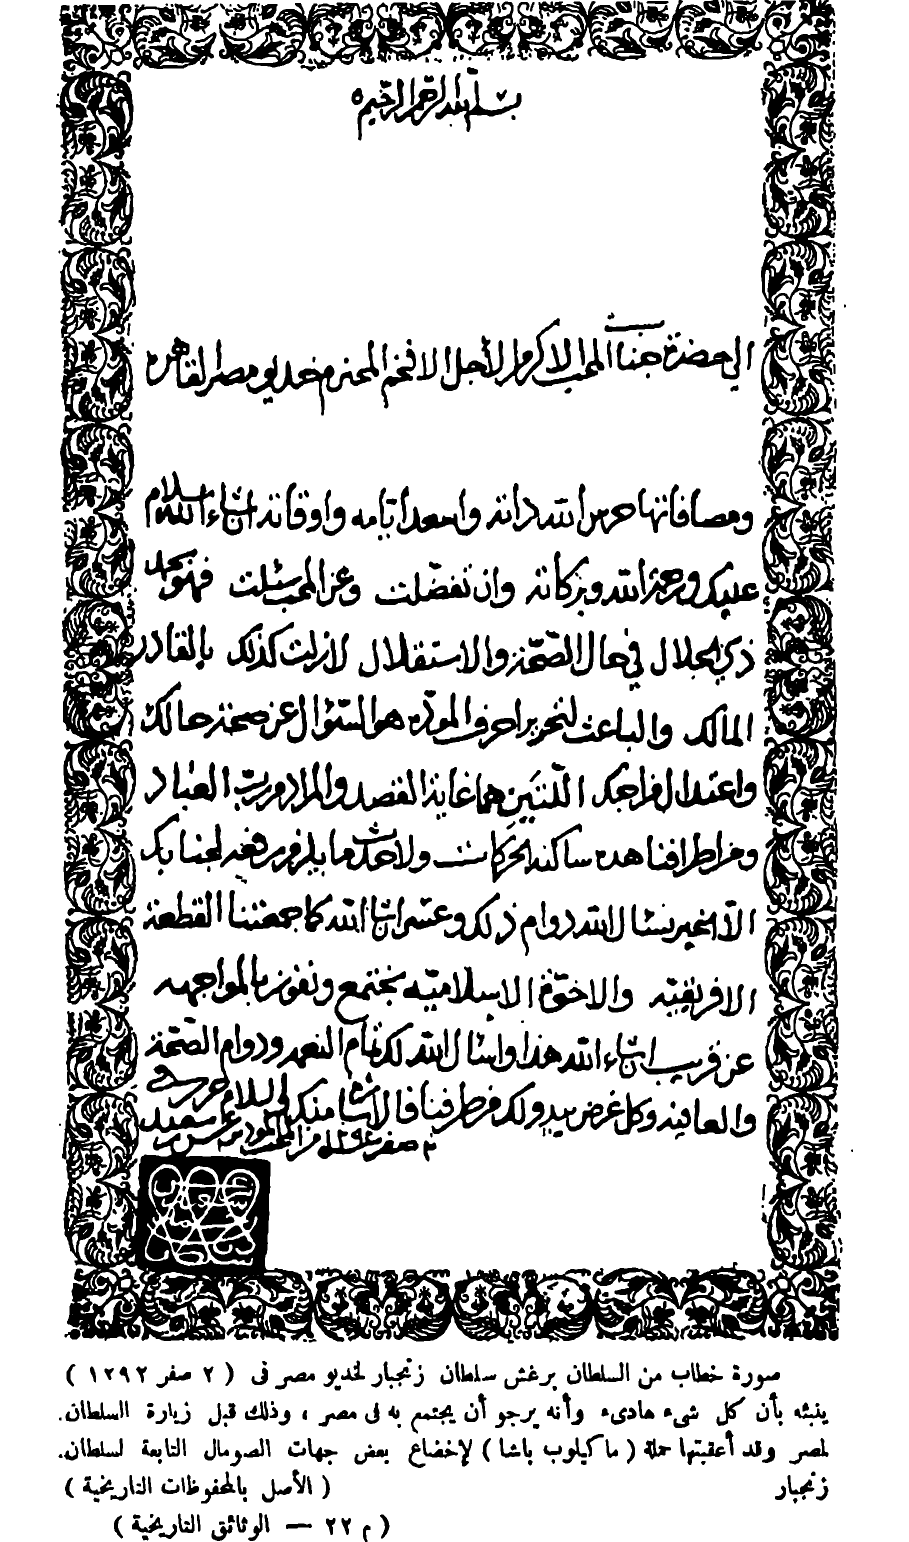 بسم الله الرحمن الرحيم
الى حضرة جناب المحب الاكرم الأجل الافخم المحترم خديو مصر القاهره
ومصافاتها حرس الله ذاته واسعد ايامه واوقاته انشاء الله سلام
عليكم ورحمة الله وبركاته وان تفضلت وعن المحب سئلت فهو بحمد
ذي الجلال في حال الصحة والاستقلال لازلت كذلك بالقادر
المالك والباعث لتحرير احرف المودّه هو السّؤال عن صحة حالك
واعتدال مزاجك اللتين هما غاية القصد والمراد من رب العباد
ومن اطرافنا هده ساكنة الحركات ولاحدث ما يلزم رفعه لجنابك
الا الخير نسئال الله دوام ذلك وعسى انشا الله كما جمعتنا القطعة
الافريقيّه والاخوّة الاسلاميّه نجتمع ونفوز بالمواجهه
عن قريب انشاء الله هذا واسئال الله لك تمام النعمه ودوام الصّحّة
والعافيه وكل غرض يبدو لك من طرفنا فالاشارة منك والسلام حرر في
٢ صفر ١٢٩٢ من المحب الودود برغش بن سعيد
صورة خطاب من السلطان برغش سلطان زنجبار لخديو مصر فى ( ٢ صفر ١٢٩٢ )
ينبئه بأن كل شىء هادىء وأنه يرجو أن يجتمع به فى مصر ، وذلك قبل زيارة السلطان.
لمصر وقد أعقبتها حملة ( ماكيلوب باشا ) لإخضاع بعض جهات الصومال التابعة لسلطان.
زنجبار ( الأصل بالمحفوظات التاريخية )
( م ٢٢ — الوثائق التاريخية )